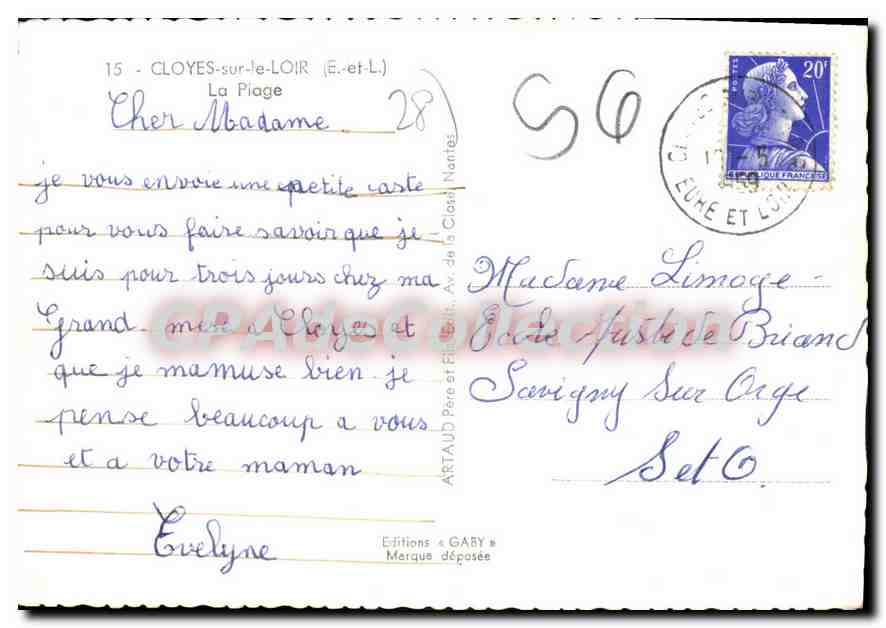 15 - CLOYES-sur-le-LOIR (E.-et-L.)
La Plage
28
56
Cher Madame
je vous envoie une petite caste
pour vous faire savoir que je
suis pour trois jours chez ma
Grand mere a Cloyes et
que je mamuse bien je
pense beaucoup a vous
et a votre maman
Evelyne
Editions « GABY »
Marque déposée
ARTAUD Père et Fils, Edit., Av. de la Close, Nantes
POSTES
20F
REPUBLIQUE FRANÇAISE
EURE ET LOIR
Madame Limoge
Ecole Aristide Briand
Savigny Sur Orge
S et O.
CPAdeCollection